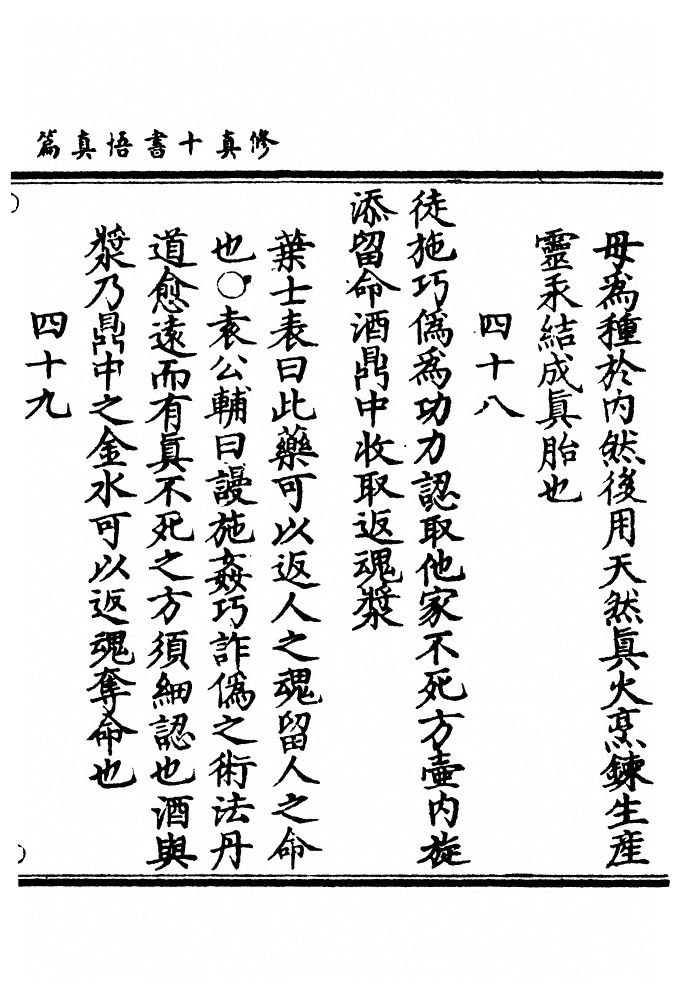 修真十書悟真篇
母為種於内然後用天然眞火烹鍊生産
靈汞結成眞胎也
四十八
徒施巧僞為功力認取他家不死方壷内旋
添留命酒鼎中收取返魂漿
葉士表曰此藥可以返人之魂留人之命
也○袁公輔曰謾施姦巧詐僞之術法丹
道愈遠而有眞不死之方須細認也酒與
漿乃鼎中之金水可以返魂奪命也
四十九